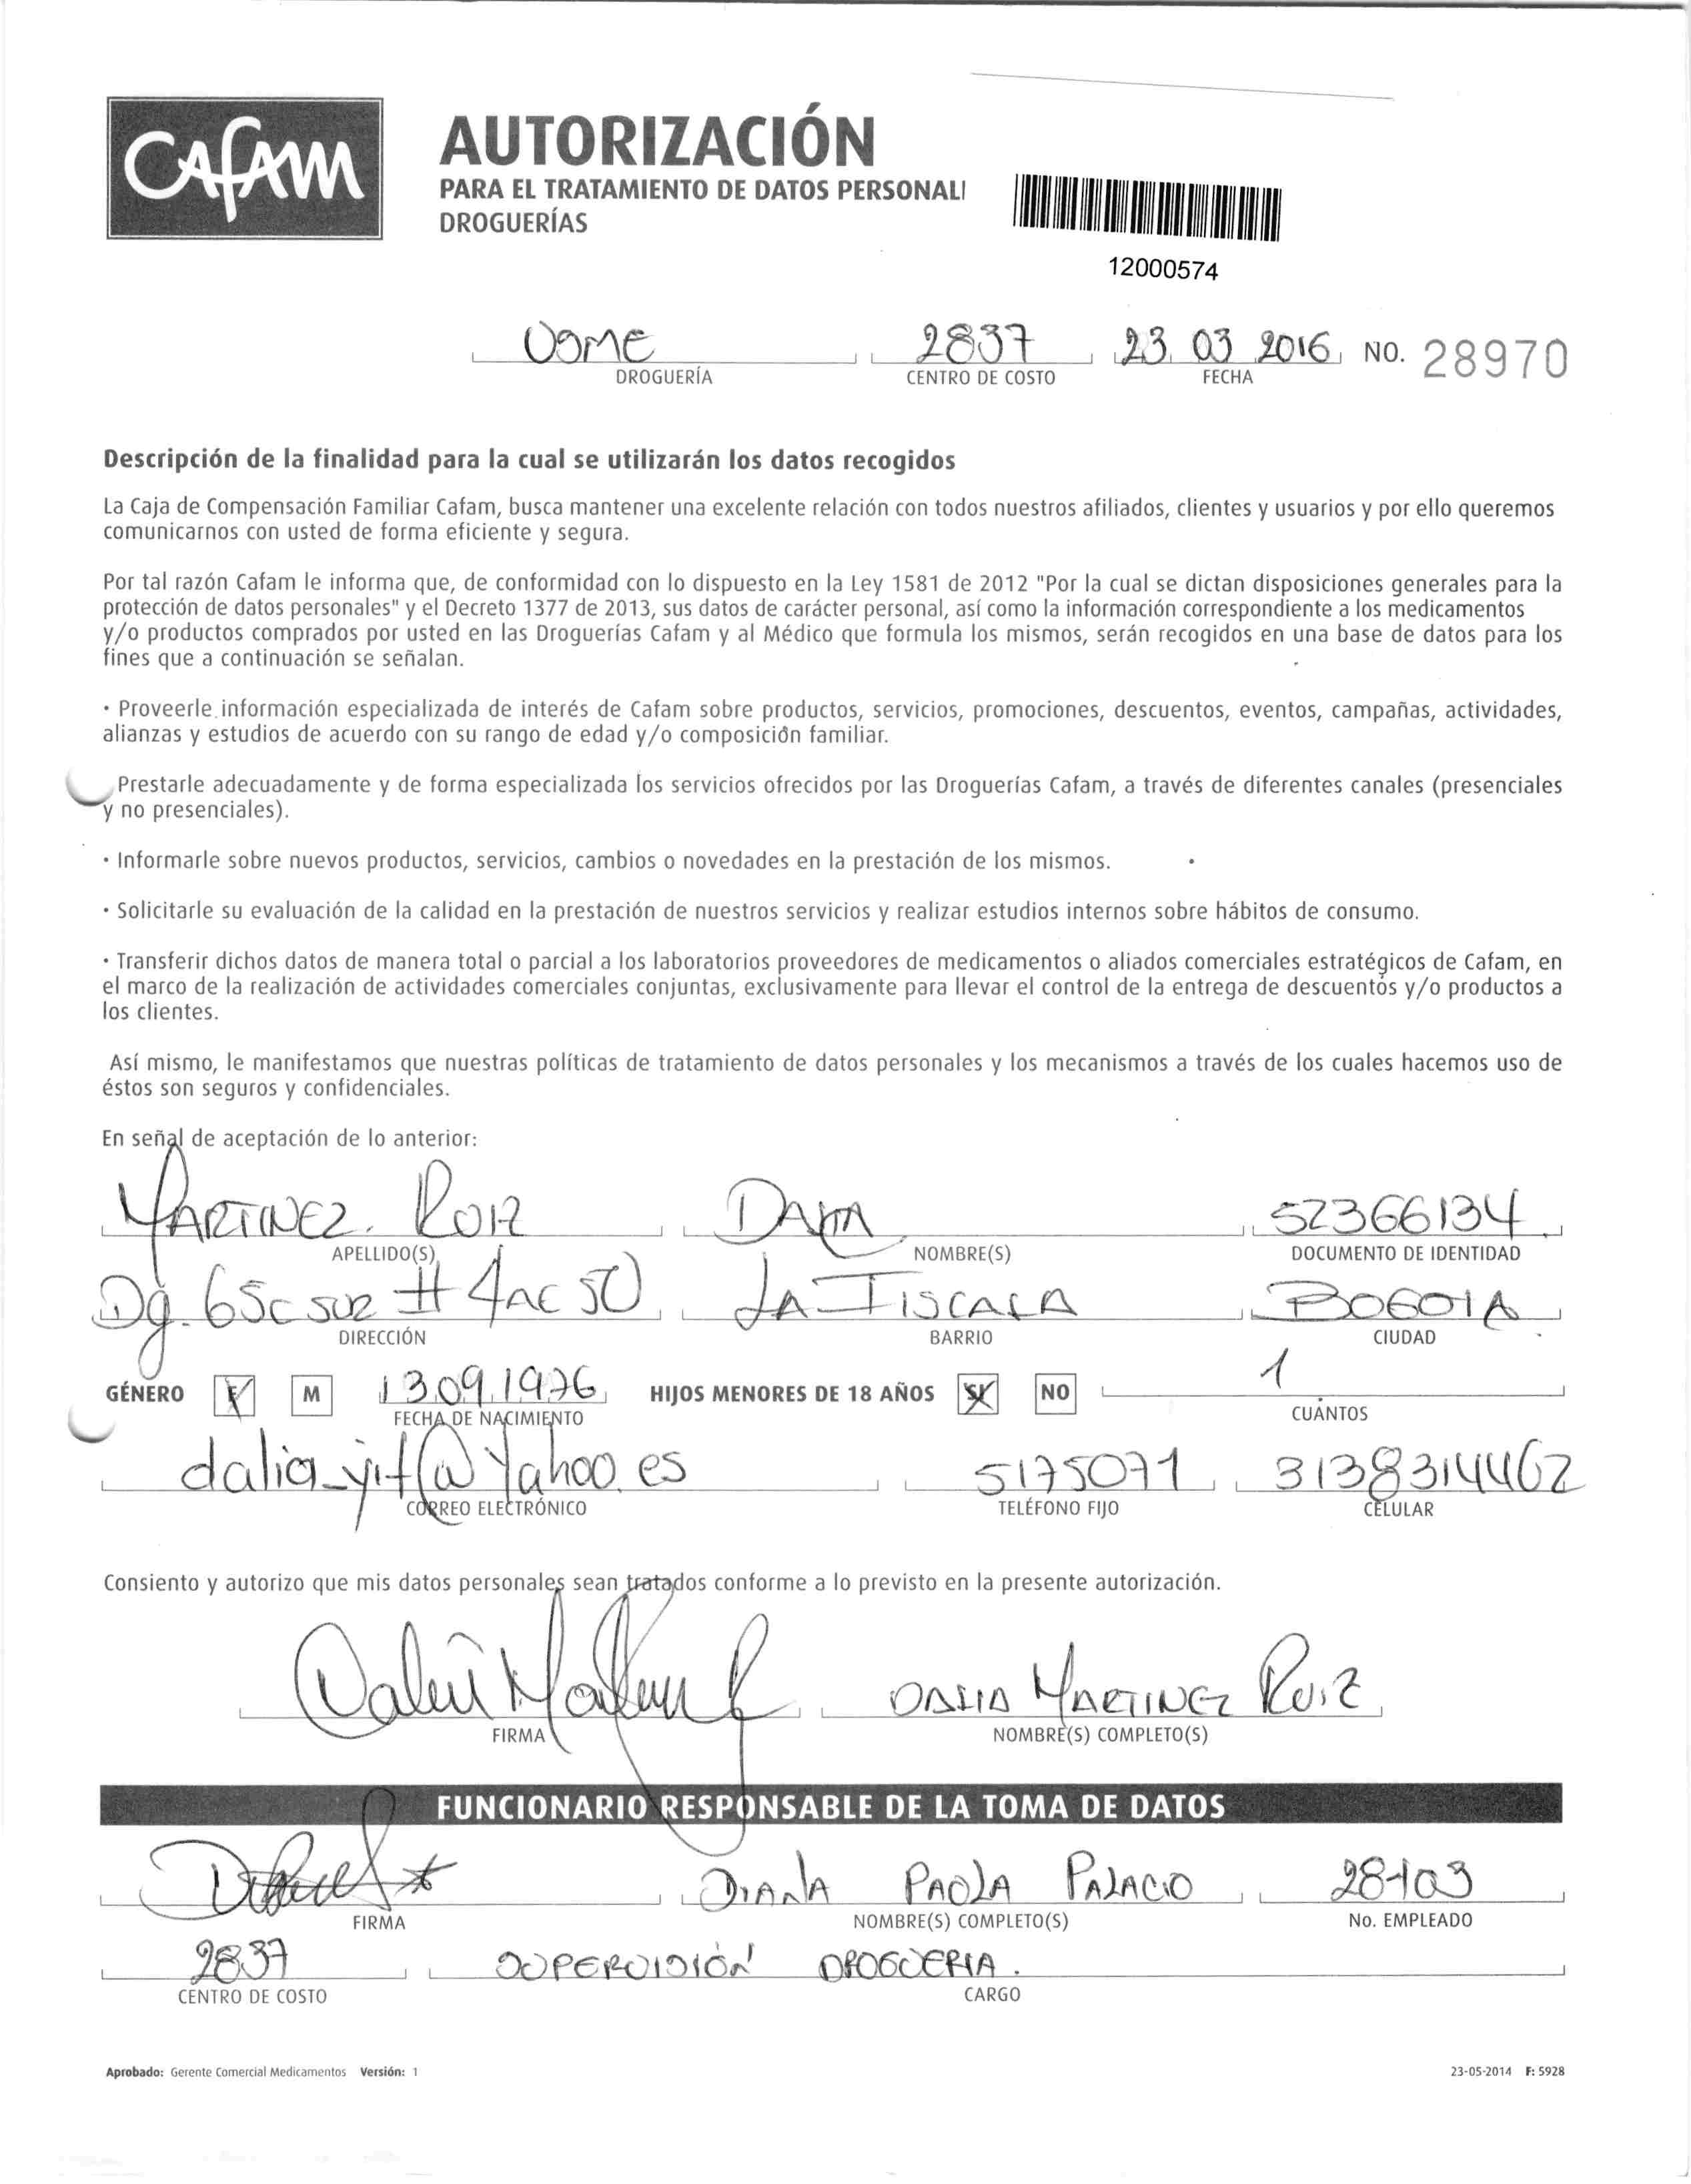 Cafam
AUTORIZACIÓN
PARA EL TRATAMIENTO DE DATOS PERSONAL
DROGUERÍAS
12000574
Usme 2837 23 03 2016 NO. 28970
DROGUERÍA CENTRO DE COSTO FECHA
Descripción de la finalidad para la cual se utilizarán los datos recogidos
La Caja de Compensación Familiar Cafam, busca mantener una excelente relación con todos nuestros afiliados, clientes y usuarios y por ello queremos
comunicarnos con usted de forma eficiente y segura.
Por tal razón Cafam le informa que, de conformidad con lo dispuesto en la Ley 1581 de 2012 "Por la cual se dictan disposiciones generales para la
protección de datos personales" y el Decreto 1377 de 2013, sus datos de carácter personal, así como la información correspondiente a los medicamentos
y/o productos comprados por usted en las Droguerías Cafam y al Médico que formula los mismos, serán recogidos en una base de datos para los
fines que a continuación se señalan.
· Proveerle información especializada de interés de Cafam sobre productos, servicios, promociones, descuentos, eventos, campañas, actividades,
alianzas y estudios de acuerdo con su rango de edad y/o composición familiar.
Prestarle adecuadamente y de forma especializada los servicios ofrecidos por las Droguerías Cafam, a través de diferentes canales (presenciales
y no presenciales).
· Informarle sobre nuevos productos, servicios, cambios o novedades en la prestación de los mismos.
· Solicitarle su evaluación de la calidad en la prestación de nuestros servicios y realizar estudios internos sobre hábitos de consumo.
· Transferir dichos datos de manera total o parcial a los laboratorios proveedores de medicamentos o aliados comerciales estratégicos de Cafam, en
el marco de la realización de actividades comerciales conjuntas, exclusivamente para llevar el control de la entrega de descuentos y/o productos a
los clientes.
Así mismo, le manifestamos que nuestras políticas de tratamiento de datos personales y los mecanismos a través de los cuales hacemos uso de
éstos son seguros y confidenciales.
En señal de aceptación de lo anterior:
MARTINEZ. RUIZ 52366134
APELLIDO(S) NOMBRE(S) DOCUMENTO DE IDENTIDAD
Dg. 65c SUR # 4AC 50 LA FISCALA BOGOTA
DIRECCIÓN BARRIO CIUDAD
GÉNERO F M 13 09 1976 HIJOS MENORES DE 18 AÑOS SI NO 1
FECHA DE NACIMIENTO CUÁNTOS
dalia_yit@yahoo.es 5175071 3138314462
CORREO ELECTRÓNICO TELÉFONO FIJO CELULAR
Consiento y autorizo que mis datos personales sean tratados conforme a lo previsto en la presente autorización.
DALIA MARTINEZ RUIZ
FIRMA NOMBRE(S) COMPLETO(S)
FUNCIONARIO RESPONSABLE DE LA TOMA DE DATOS
DIANA PAOLA PALACIO 28103
FIRMA NOMBRE(S) COMPLETO(S) No. EMPLEADO
2837 SUPERVISIÓN DROGUERIA.
CENTRO DE COSTO CARGO
Aprobado: Gerente Comercial Medicamentos Versión: 1 23-05-2014 F: 5928